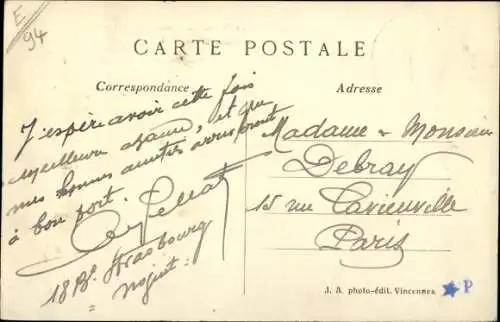 E
94
CARTE POSTALE
Correspondance
Adresse
J'espère avoir cette fois
meilleure chance, et que
mes bonnes amitiés arriveront
à bon port.
18 Bd Strasbourg
Nogent
Madame & Monsieur
Debray
15 rue Tavieuville
Paris
J. A. photo-édit. Vincennes
P